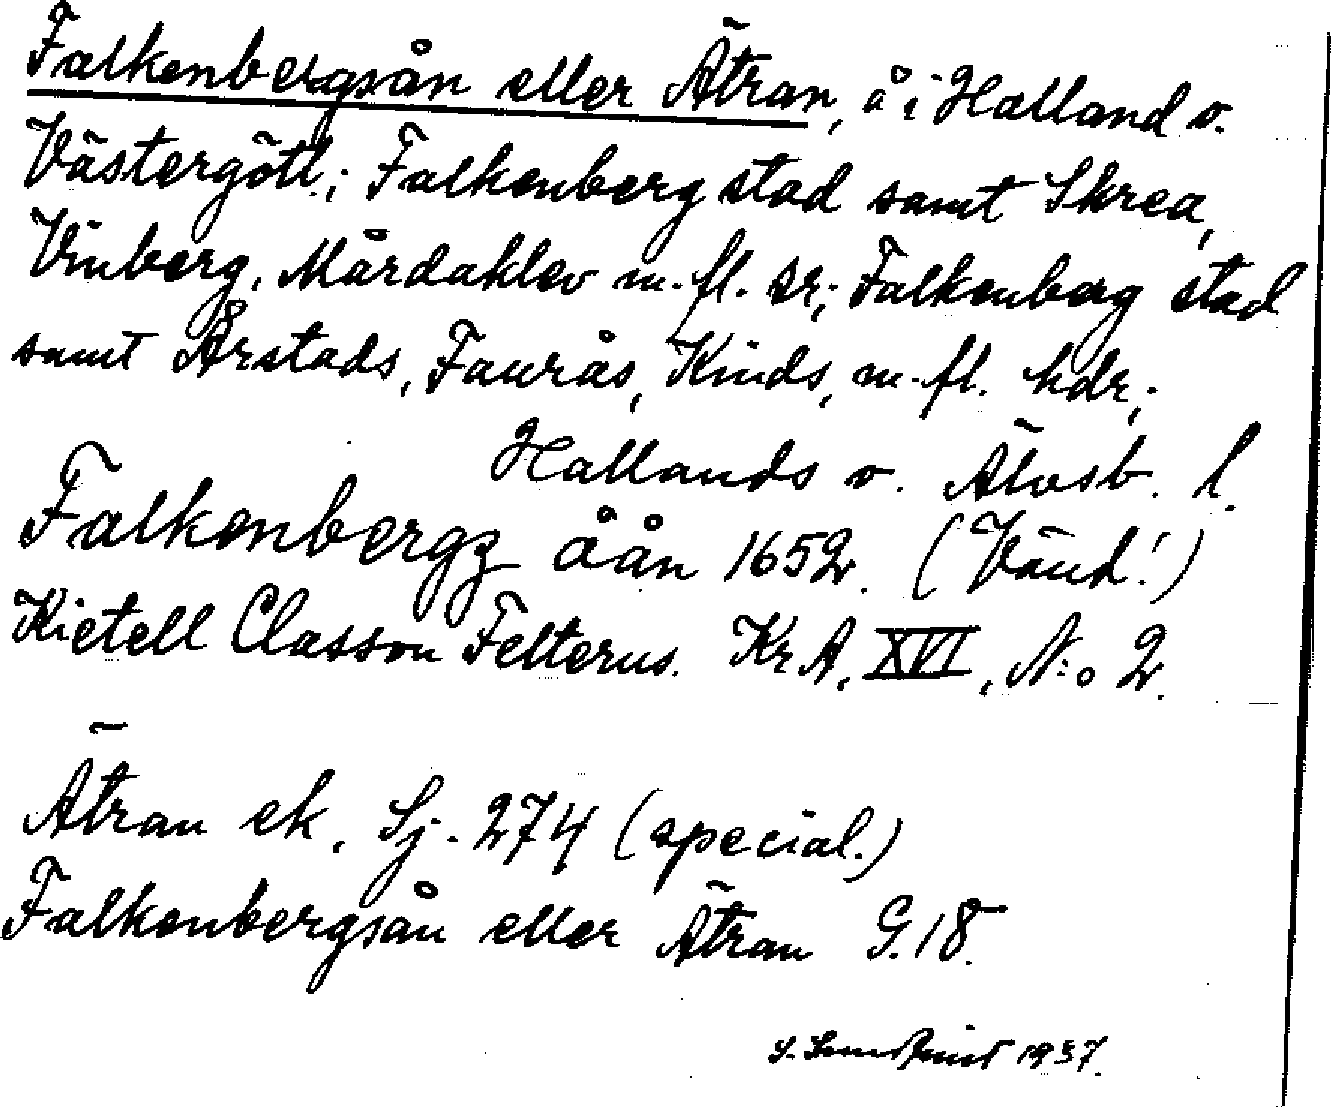 Falkenbergsån eller Ätran, å i Halland o.
Västergötl.; Falkenberg stad samt Skrea,
Vinberg, Mårdaklev m.fl. sr; Falkenberg stad
samt Årstads, Faurås, Kinds, m.fl. hdr;
Hallands o. Älvsb. l.
Falkenbergz åån 1652. (Vänd!)
Kietell Classon Felterus. KrA, XVI, N:o 2.
Ätran ek. Sj. 274 (special.)
Falkenbergsån eller Ätran G.18.
1937.